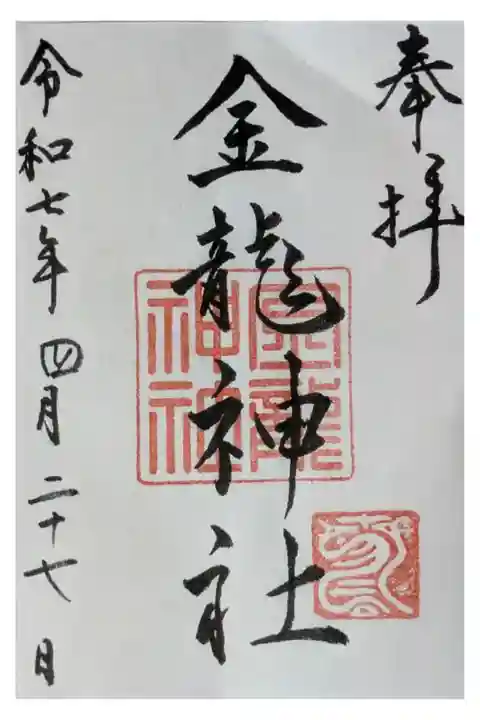 奉拝
金龍神社
令和七年四月二十七日